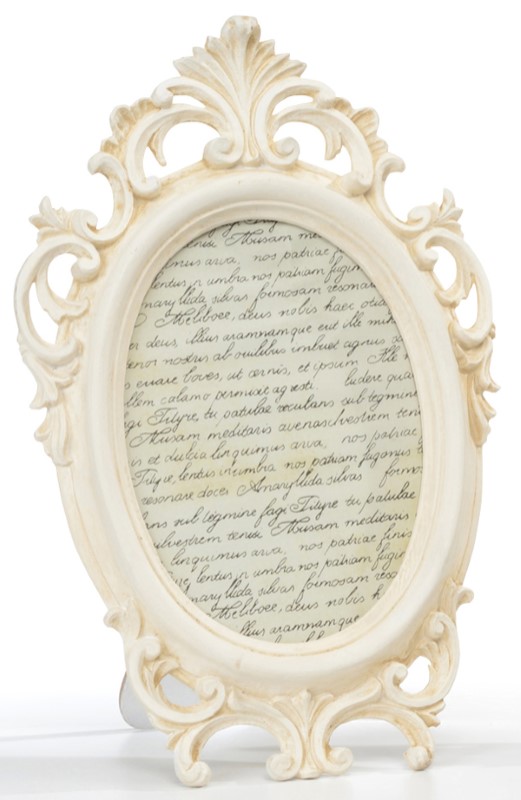 tenisi Musam me
imus arva, nos patriae
lentus, n umbra nos patriam fugim
maryllida silvas formosam resonar
Meliboee, deus nobis haec otia
er deus, illius aramnamque erit ille mihi
enor nostris ab ovilibus imbuet agnus
s errare boves, ut cernis, et ipsum Ille
llem calamo permisit agresti. ludere quae
gi Tityre tu patulae recubans sub tegmine
Musam meditaris avenaSilvestrem tenu
is et dulcia linquimus arva, nos patriae
Tityre, lentus in umbra nos patriam fugimus
resonare doces Amaryllida silvas formo
ans sub tegmine fagi Tityre tu patulae
ulvestrem tenisi Musam meditaris
linquimus arva, nos patriae finis
lentus, n umbra nos patriam fugim
maryllida silvas formosam reso
Meliboee, deus nobis h
illius aramnamque